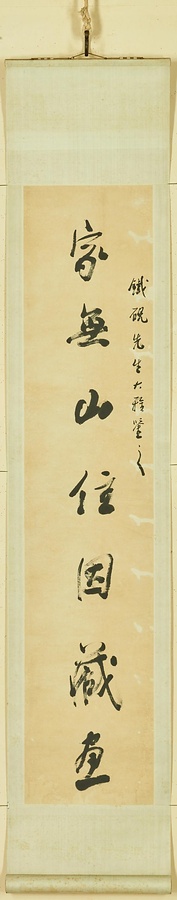 鐵硯先生大雅鑒之
家無山住因藏畫